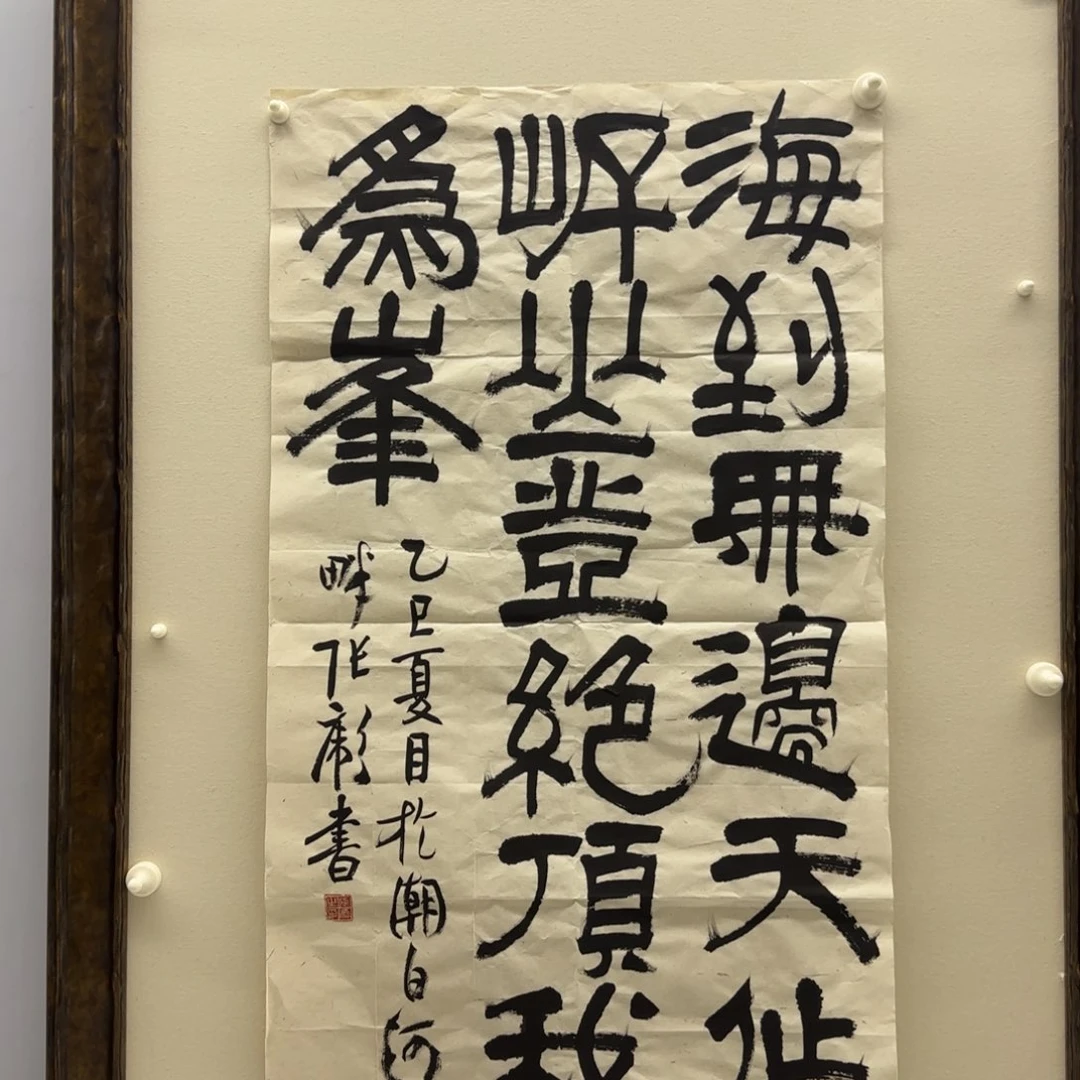 海到無邊天作
岸山登絕頂我
爲峯
乙巳夏月於潮白河
畔张書